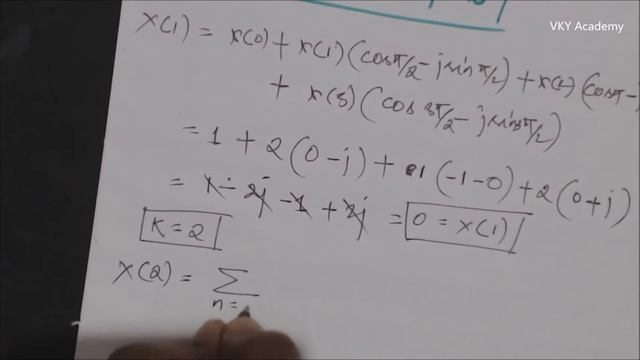 VKY Academy
X(1) = x(0) + x(1) (cos π/2 - j sin π/2) + x(2) (cos π -
+ x(3) (cos 3π/2 - j sin 3π/2)
= 1 + 2 (0 - j) + 1 (-1 - 0) + 2 (0 + j)
= 1 - 2j - 1 + 2j = 0 = X(1)
K = 2
X(2) = Σ
n =